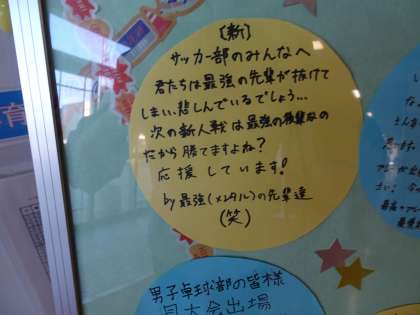 〔新〕
サッカー部のみんなへ
君たちは最強の先輩が抜けて
しまい、悲しんでいるでしょう…
次の新人戦は最強の後輩なの
だから勝てますよね?
応援しています!
by最強(メンタル)の先輩達
(笑)
男子卓球部の皆様
県大会出場
育